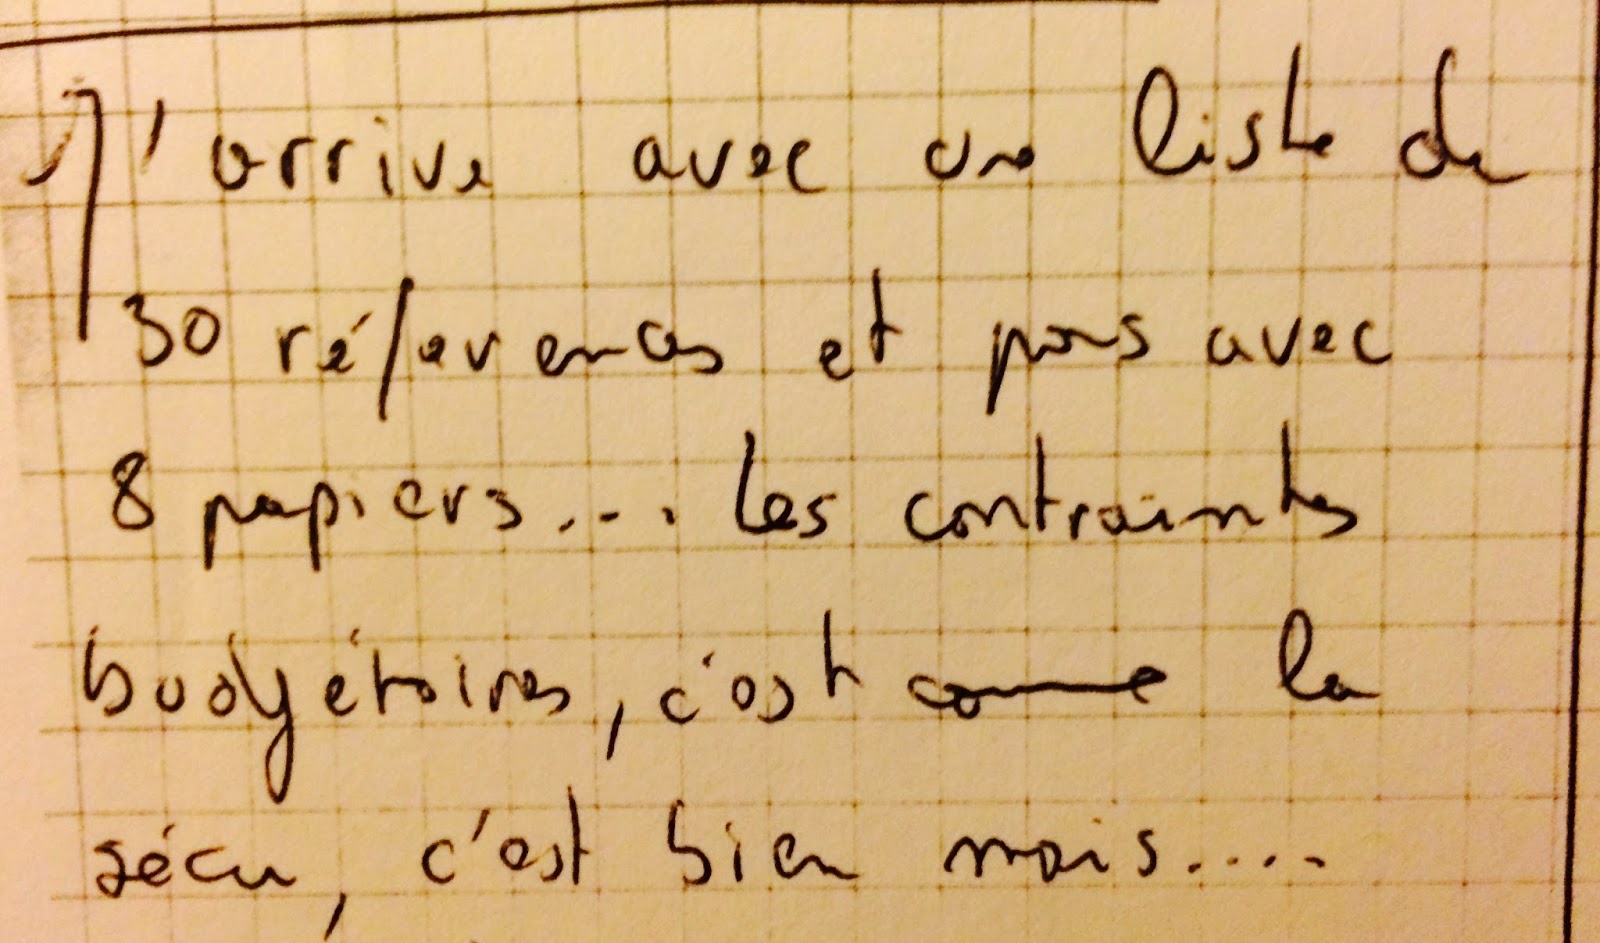 J'arrive avec une liste de
30 réferences et pars avec
8 papiers.... Les contraintes
budgétaires, c'est comme la
sécu, c'est bien mais....